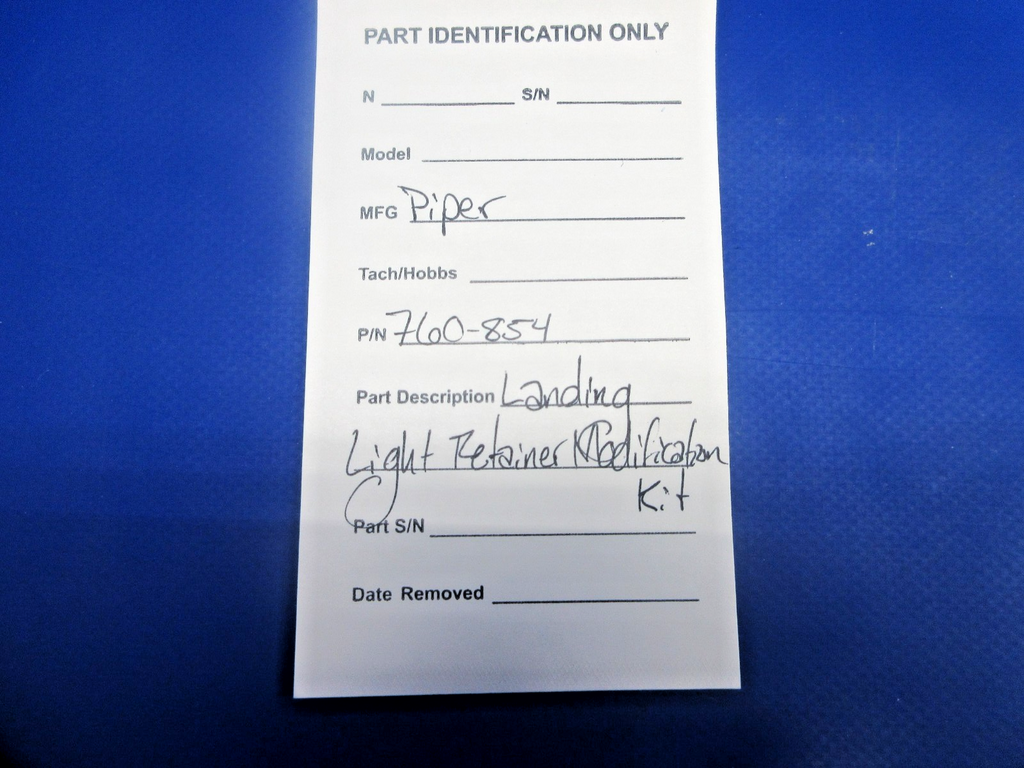 PART IDENTIFICATION ONLY
N S/N
Model
MFG Piper
Tach/Hobbs
P/N 760-854
Part Description Landing
Light Retainer Modification
Kit
Part S/N
Date Removed